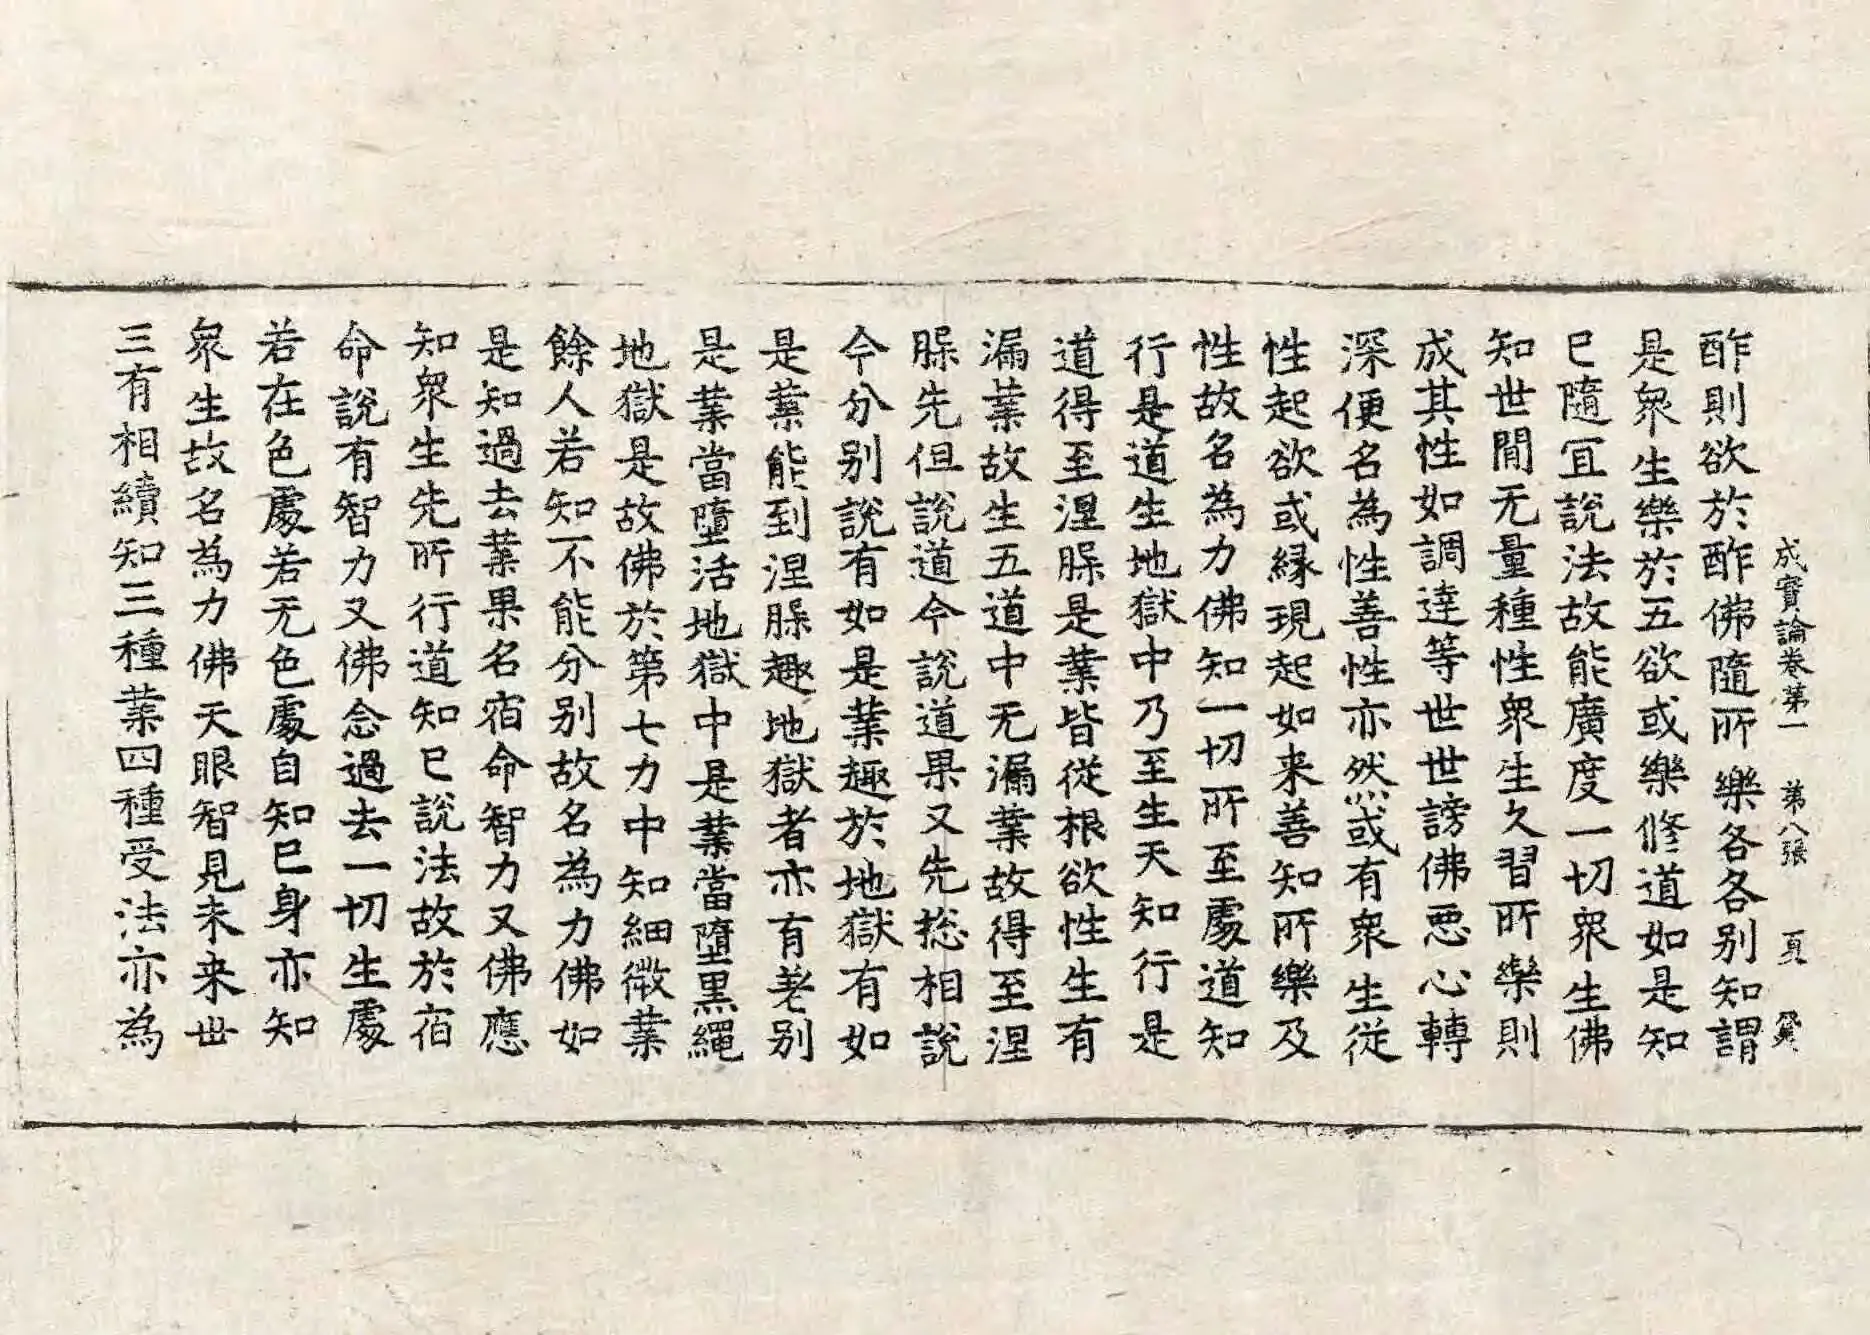 成實論卷第一 第八張 頁
酢則欲於酢佛隨所樂各各別知謂
是衆生樂於五欲或樂修道如是知
已隨冝說法故能廣度一切衆生佛
知世間无量種性衆生久習所樂則
成其性如調達等世世謗佛惡心轉
深便名為性善性亦然或有衆生從
性起欲或緣現起如来善知所樂及
性故名為力佛知一切所至處道知
行是道生地獄中乃至生天知行是
道得至涅槃是業皆從根欲性生有
漏業故生五道中无漏業故得至涅
槃先但說道今說道果又先揔相說
今分別說有如是業趣於地獄有如
是業能到涅槃趣地獄者亦有差別
是業當墮活地獄中是業當墮黑繩
地獄是故佛於第七力中知細微業
餘人若知不能分別故名為力佛如
是知過去業果名宿命智力又佛應
知衆生先所行道知已說法故於宿
命說有智力又佛念過去一切生處
若在色處若无色處自知已身亦知
衆生故名為力佛天眼智見未来世
三有相續知三種業四種受法亦為